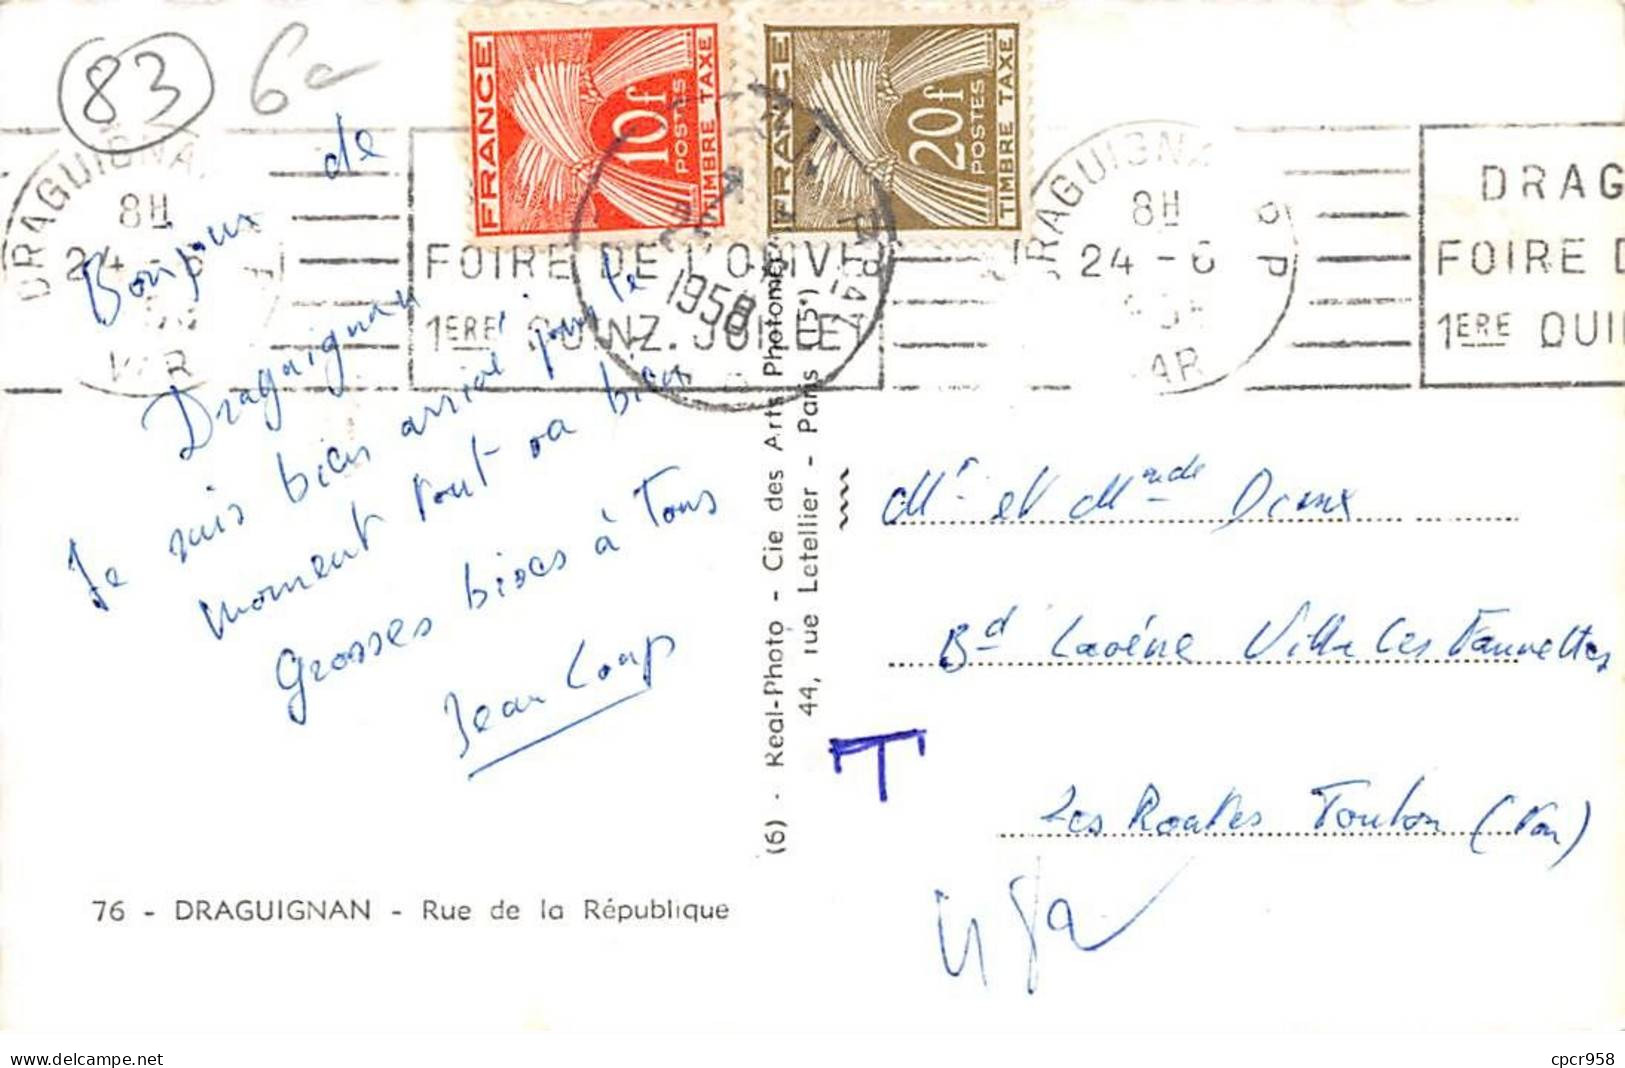 83
6e
FRANCE
10f
POSTES
TIMBRE TAXE
FRANCE
20f
POSTES
TIMBRE TAXE
DRAGUIGNAN
8H
24 - 6
VAR
FOIRE DE L'OLIVE
1ERE QUINZ. JUILLET
1958
DRAGUIGNAN P P
8H
24 - 6
VAR
DRAG
FOIRE D
1ERE QUI
Bonjour de
Draguignan
Je suis bien arrivé pour le
moment tout va bien
Grosses bises à Tous
Jean Loup
(6) - Real-Photo - Cie des Arts Photoméca
44, rue Letellier - Paris (15e)
Mr et Mmde
Bd Villa Les Fauvettes
Les Routes Toulon (Var)
T
76 - DRAGUIGNAN - Rue de la République
delcampe.net
cpcr958